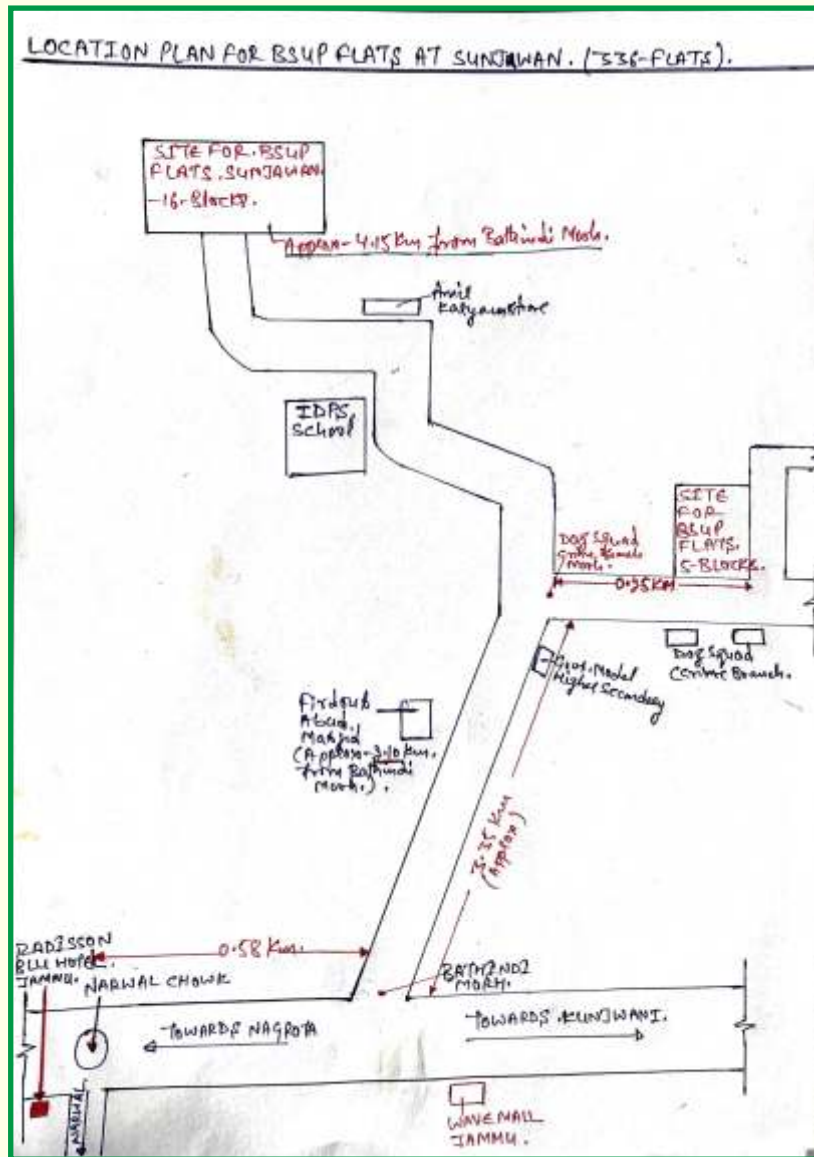 LOCATION PLAN FOR BSUP FLATS AT SUNJAWAN. (336-FLATS).
SITE FOR BSUP
FLATS SUNJAWAN.
-16-Blocks.
Approx-4.15 Km from Bathindi Morh.
IDPS
School
SITE
FOR
BSUP
FLATS.
5-BLOCKS.
Dog Squad
Morh.
Dog Squad
Branch.
Model
Higher Secondary
Abad
Masjid
(Approx-3.10 Km.
from Bathindi
Morh.).
3.35 Km
(Approx)
0.58 Km.
RADISSON
BLU HOTEL.
JAMMU.
NARWAL CHOWK
BATHINDI
MORH.
TOWARDS NAGROTA
TOWARDS KUNJWANI.
NARWAL
WAVE MALL
JAMMU.